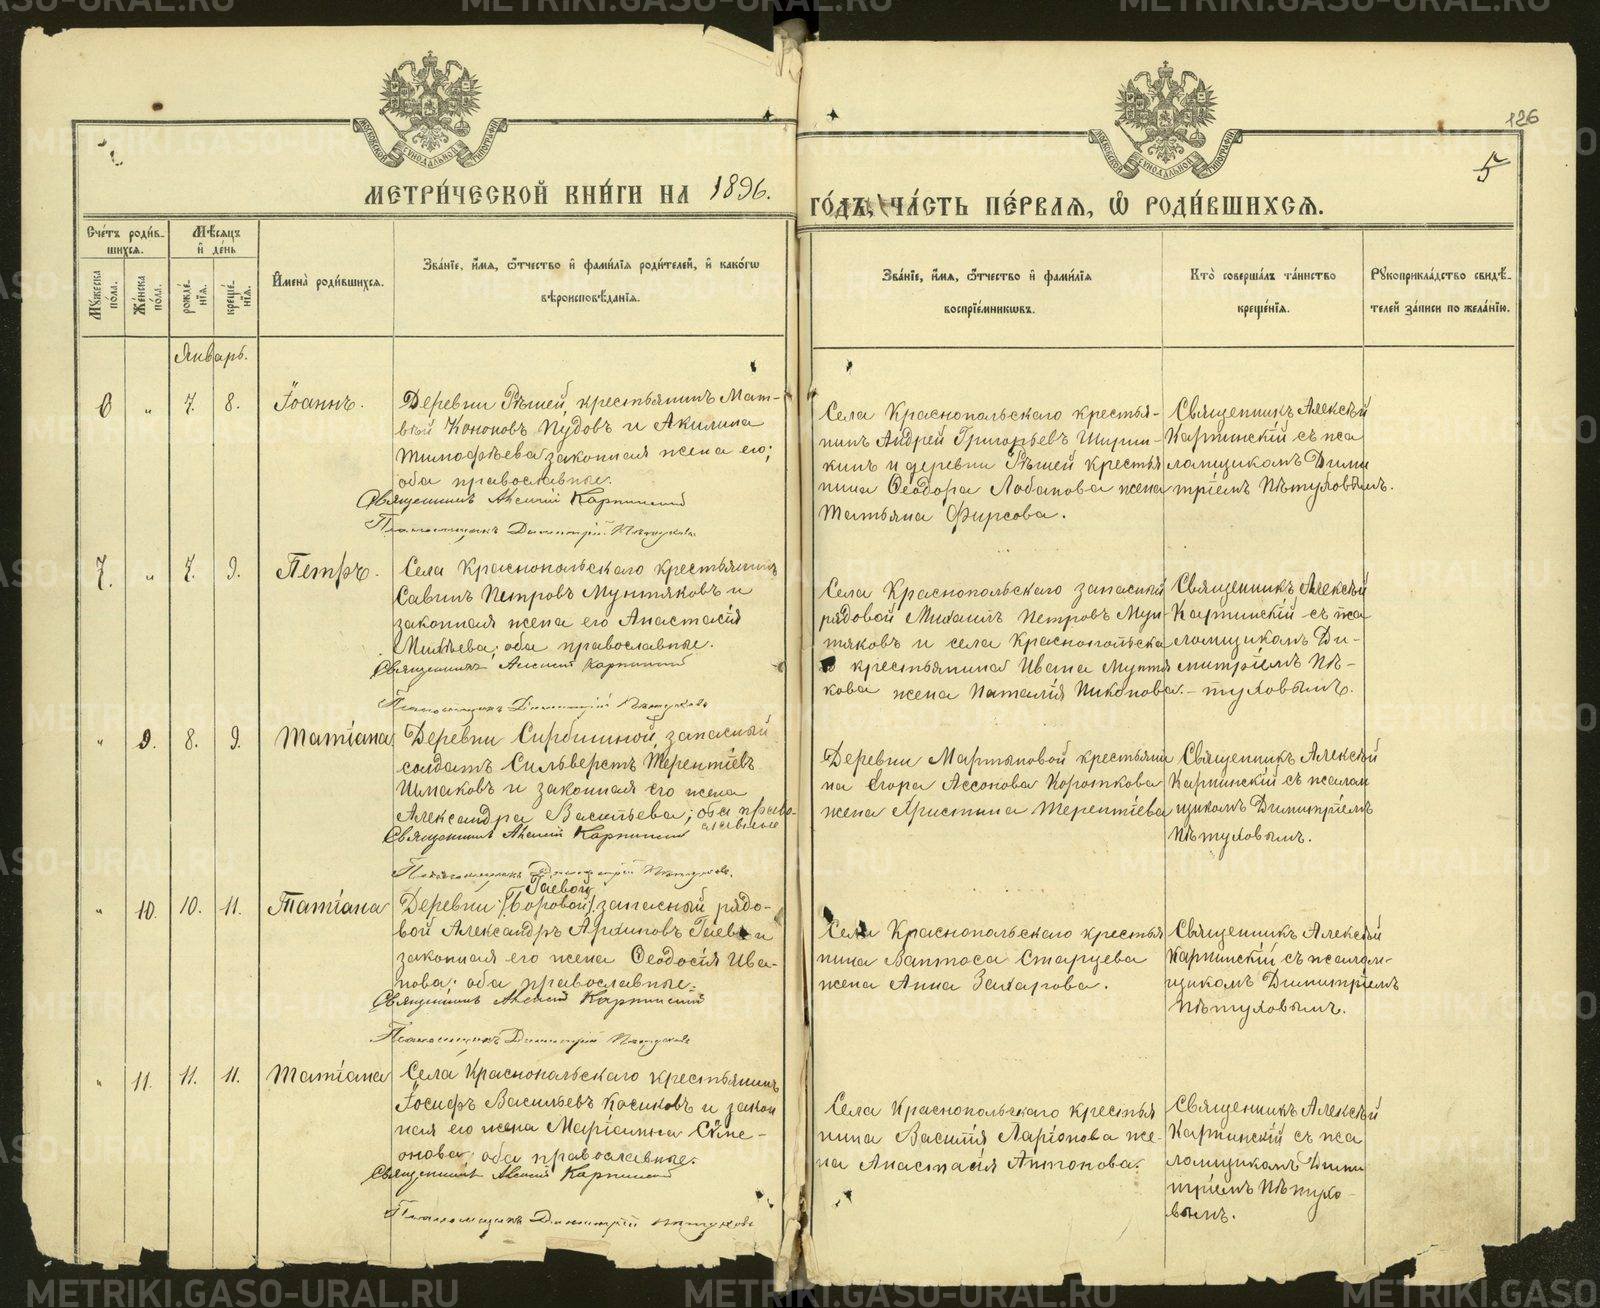 METRIKI.GASO-URAL.RU
126
5
МОСКОВСКОЙ СѴНОДАЛЬНОЙ ТИПОГРАФІИ
МОСКОВСКОЙ СѴНОДАЛЬНОЙ ТИПОГРАФІИ
МЕТРИ́ЧЕСКОЙ КНИ́ГИ НА 1896.
ГО́ДЪ, ЧА́СТЬ ПЕ́РВАЯ, Ѡ҆ РОДИ́ВШИХСЯ.
Сче́тъ роди́вшихся.
Му́жеска по́ла.
Же́нска по́ла.
Мѣ́сяцъ и҆ де́нь
рожде́нїя.
креще́нїя.
И҆мена̀ роди́вшихся.
Зва́нїе, и҆́мя, ѻ҆́тчество и҆ фами́лїя роди́телей, и҆ како́гѡ
вѣроисповѣ́данїя.
Зва́нїе, и҆́мя, ѻ҆́тчество и҆ фами́лїя
воспрїе́мникѡвъ.
Кто̀ соверша́лъ та́инство
креще́нїя.
Рꙋкоприкла́дство свидѣ́-
телей за́писи по жела́нїю.
Январь.
6 „ 7. 8. Іоаннъ.
Деревни Рѣшей, крестьянинъ Мат-
вѣй Кононовъ Пудовъ и Акилина
Тимофѣева законная жена его;
оба православные.
Священникъ Алексій Карпинскій
Псаломщикъ Димитрій Пѣтуховъ
Села Краснопольскаго крестья-
нинъ Андрей Григорьевъ Ширин-
кинъ и деревни Рѣшей крестья
нина Ѳеодора Лобанова жена
Татьяна Фирсова.
Священникъ Алексѣй
Карпинскій съ пса
ломщикомъ Дими
тріемъ Пѣтуховымъ.
7. „ 7. 9. Петръ.
Села Краснопольскаго крестьянинъ
Савинъ Петровъ Мунтяковъ и
законная жена его Анастасія
Михѣева; оба православные.
Священникъ Алексій Карпинскій
Псаломщикъ Димитрій Пѣтуховъ
Села Краснопольскаго запасный
рядовой Михаилъ Петровъ Мун-
тяковъ и села Краснопольска
крестьянина Ивана Мунтя
кова жена Наталія Никонова.
Священникъ Алексѣй
Карпинскій съ пса
ломщикомъ Ди-
митріемъ Пѣ-
туховымъ.
„ 9. 8. 9. Татіана
Деревни Сирбишной, запасный
солдатъ Сильверстъ Терентіевъ
Шмаковъ и законная его жена
Александра Васильева; оба право-
славные
Священникъ Алексій Карпинскій
Псаломщикъ Димитрій Пѣтуховъ.
Деревни Мартяновой крестьяни
на Егора Ассонова Короткова
жена Христина Терентіева
Священникъ Алексѣй
Карпинскій съ псалом
щикомъ Димитріемъ
Пѣтуховымъ.
„ 10. 10. 11. Татіана
Гаевой
Деревни (Боровой) запасный рядо-
вой Александръ Архиповъ Гаевъ и
законная его жена Ѳеодосія Ива-
нова; оба православные.
Священникъ Алексій Карпинскій
Псаломщикъ Димитрій Пѣтуховъ
Села Краснопольскаго крестья
нина Ваптоса Старцева
жена Анна Захарова.
Священникъ Алексѣй
Карпинскій съ псалом-
щикомъ Димитріемъ
Пѣтуховымъ.
„ 11. 11. 11. Татіана
Села Краснопольскаго крестьянинъ
Іосифъ Васильевъ Косиковъ и закон
ная его жена Маріанна Сѵме-
онова; оба православные.
Священникъ Алексій Карпинскій
Псаломщикъ Димитрій Пѣтуховъ
Села Краснопольскаго крестья
нина Василія Ларіонова же-
на Анастасія Антонова.
Священникъ Алексѣй
Карпинскій съ пса
ломщикомъ Дими
тріемъ Пѣтухо-
вымъ.